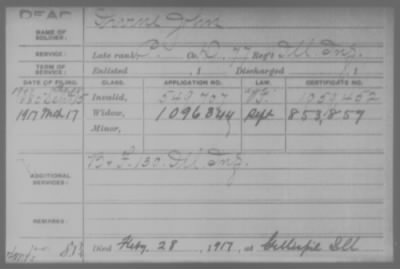 DEAD
NAME OF SOLDIER: Thorne John
SERVICE: Late rank P. Co. D, 77 Reg't Ill Inf.
TERM OF SERVICE: Enlisted , 1 Discharged , 1
DATE OF FILING. CLASS. APPLICATION NO. LAW. CERTIFICATE NO.
Invalid, 549707 1059452
1917 Mch 17 Widow, 1096344 Sept 853,857
Minor,
ADDITIONAL SERVICES: B & F. 130. Ill Inf.
REMARKS:
Died Feby. 28, 1917, at Gillespie Ill